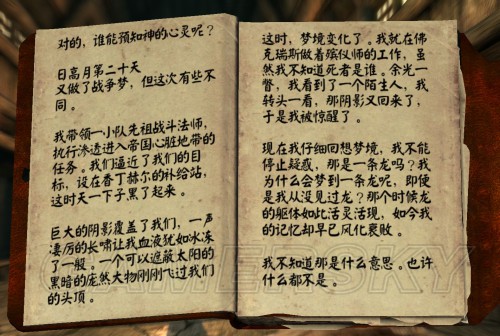 对的，谁能预知神的心灵呢？
日高月第二十天
又做了战争梦，但这次有些不
同。
我带领一小队先祖战斗法师，
执行渗透进入帝国心脏地带的
任务。我们逼近了我们的目
标，设在香丁赫尔的补给站，
这时天一下子黑了起来。
巨大的阴影覆盖了我们，一声
凄厉的长啸让我血液犹如冰冻
了一般。一个可以遮蔽太阳的
黑暗的庞然大物刚刚飞过我们
的头顶。
这时，梦境变化了。我就在佛
克瑞斯做着殡仪师的工作，虽
然我不知道死者是谁。余光一
瞥，我看到了一个陌生人，我
转头一看，那阴影又回来了，
于是我被惊醒了。
现在我仔细回想梦境，我不能
停止疑惑，那是一条龙吗？我
为什么会梦到一条龙呢，即使
是我从没见过龙？那个时候龙
的躯体如此活灵活现，如今我
的记忆却早已风化衰败。
我不知道那是什么意思。也许
什么都不是。
GAMERSKY